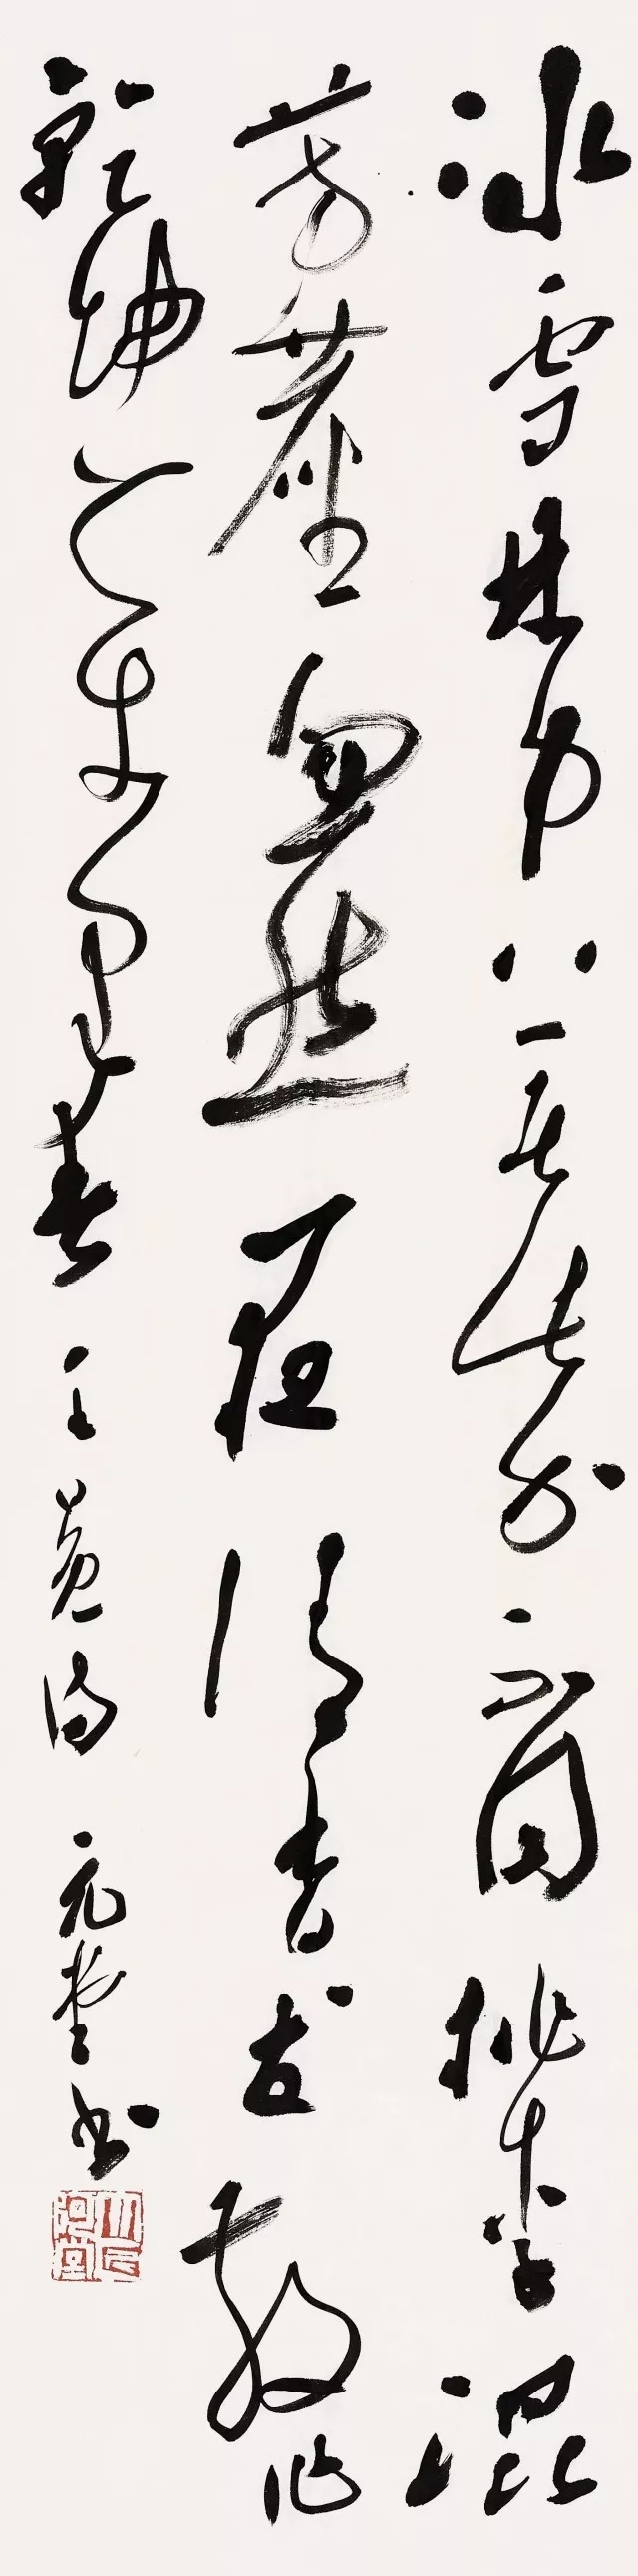 冰雪林中著此身不同桃李混
芳尘忽然一夜清香发散作
乾坤万里春 王冕诗 元堂书